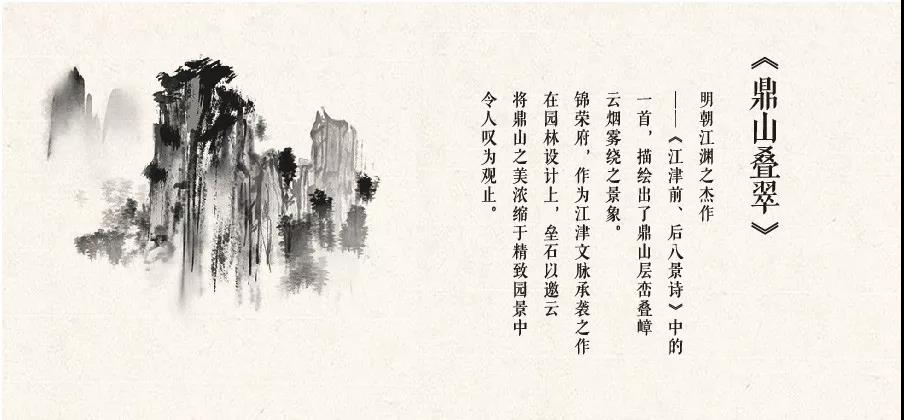 《鼎山叠翠》
明朝江渊之杰作
——《江津前、后八景诗》中的
一首，描绘出了鼎山层峦叠嶂
云烟雾绕之景象。
锦荣府，作为江津文脉承袭之作
在园林设计上，垒石以邀云
将鼎山之美浓缩于精致园景中
令人叹为观止。